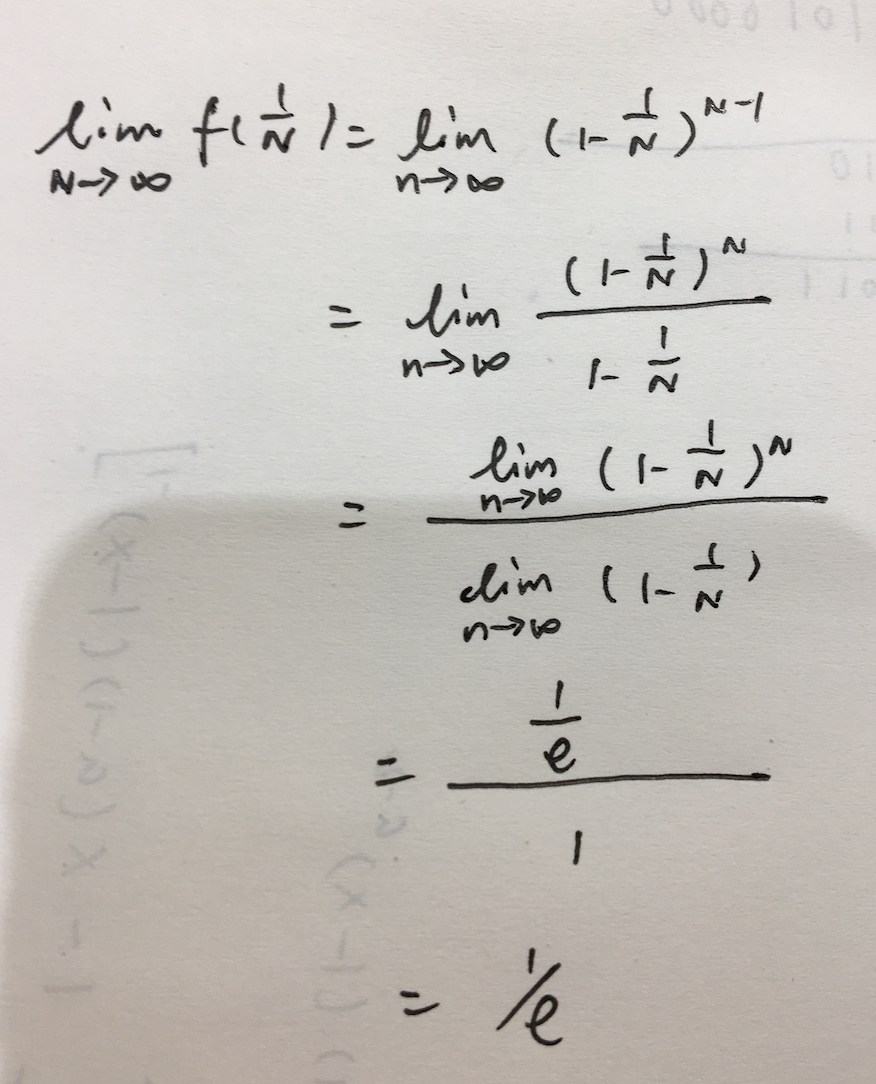 lim_{N→∞} f(1/N) = lim_{n→∞} (1-1/N)^{N-1}
= lim_{n→∞} (1-1/N)^N / (1-1/N)
= lim_{n→∞} (1-1/N)^N / lim_{n→∞} (1-1/N)
= (1/e) / 1
= 1/e